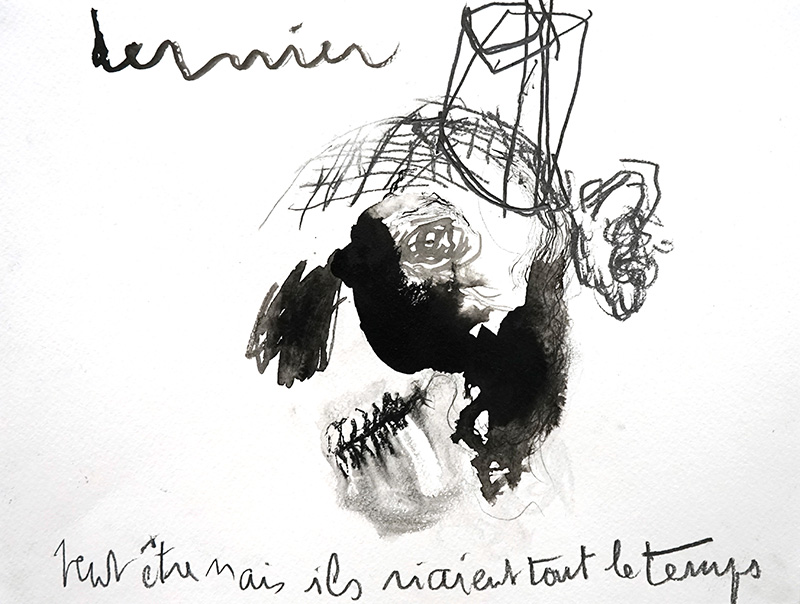 dernier
Peut être mais ils riaient tout le temps